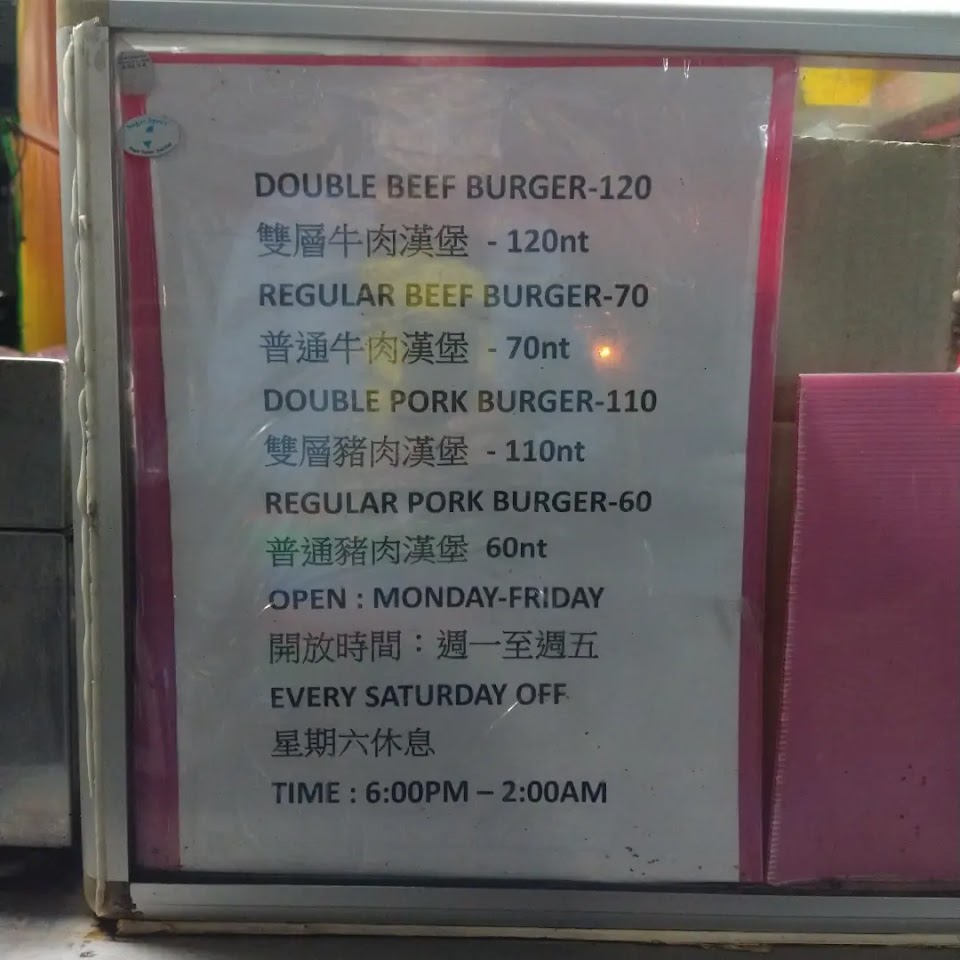 DOUBLE BEEF BURGER-120
雙層牛肉漢堡 - 120nt
REGULAR BEEF BURGER-70
普通牛肉漢堡 - 70nt
DOUBLE PORK BURGER-110
雙層豬肉漢堡 - 110nt
REGULAR PORK BURGER-60
普通豬肉漢堡 60nt
OPEN : MONDAY-FRIDAY
開放時間：週一至週五
EVERY SATURDAY OFF
星期六休息
TIME : 6:00PM – 2:00AM